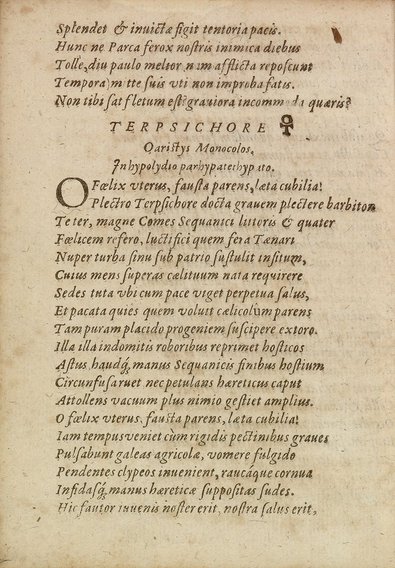 Splendet & invictæ figit tentoria pacis.
Hunc ne Parca ferox nostris inimica diebus
Tolle, diu paulo melior nam afflicta reposcunt
Tempora mitte suis vti non improba fatis.
Non tibi sat fletum est? graviora incommoda quæris?
TERPSICHORE
Oaristys Monocolos,
In hypolydio parhypatehypato.
O Fœlix vterus, fausta parens, læta cubilia!
Plectro Terpsichore docta gravem plectere barbiton
Te ter, magne Comes Sequanici littoris & quater
Fœlicem refero, luctifici quem fera Tænari
Nuper turba sinu sub patrio sustulit insitum,
Cuius mens superas cælituum nata requirere
Sedes tuta vbi cum pace viget perpetua salus,
Et pacata quies quem voluit cælicolum parens
Tam puram placido progeniem suscipere ex toro.
Illa illa indomitis roboribus reprimet hosticos
Astus haudq́; manus Sequanicis finibus hostium
Circunfusa ruet nec petulans hæreticus caput
Attollens vacuum plus nimio gestiet amplius.
O fœlix vterus, fausta parens, læta cubilia!
Iam tempus veniet cùm rigidis pectinibus graves
Pulsabunt galeas agricolæ, vomere fulgido
Pendentes clypeos invenient, raucáque cornua
Infidasq́; manus hæreticæ suppositas sudes.
Hic fautor iuvenis noster erit, nostra salus erit,